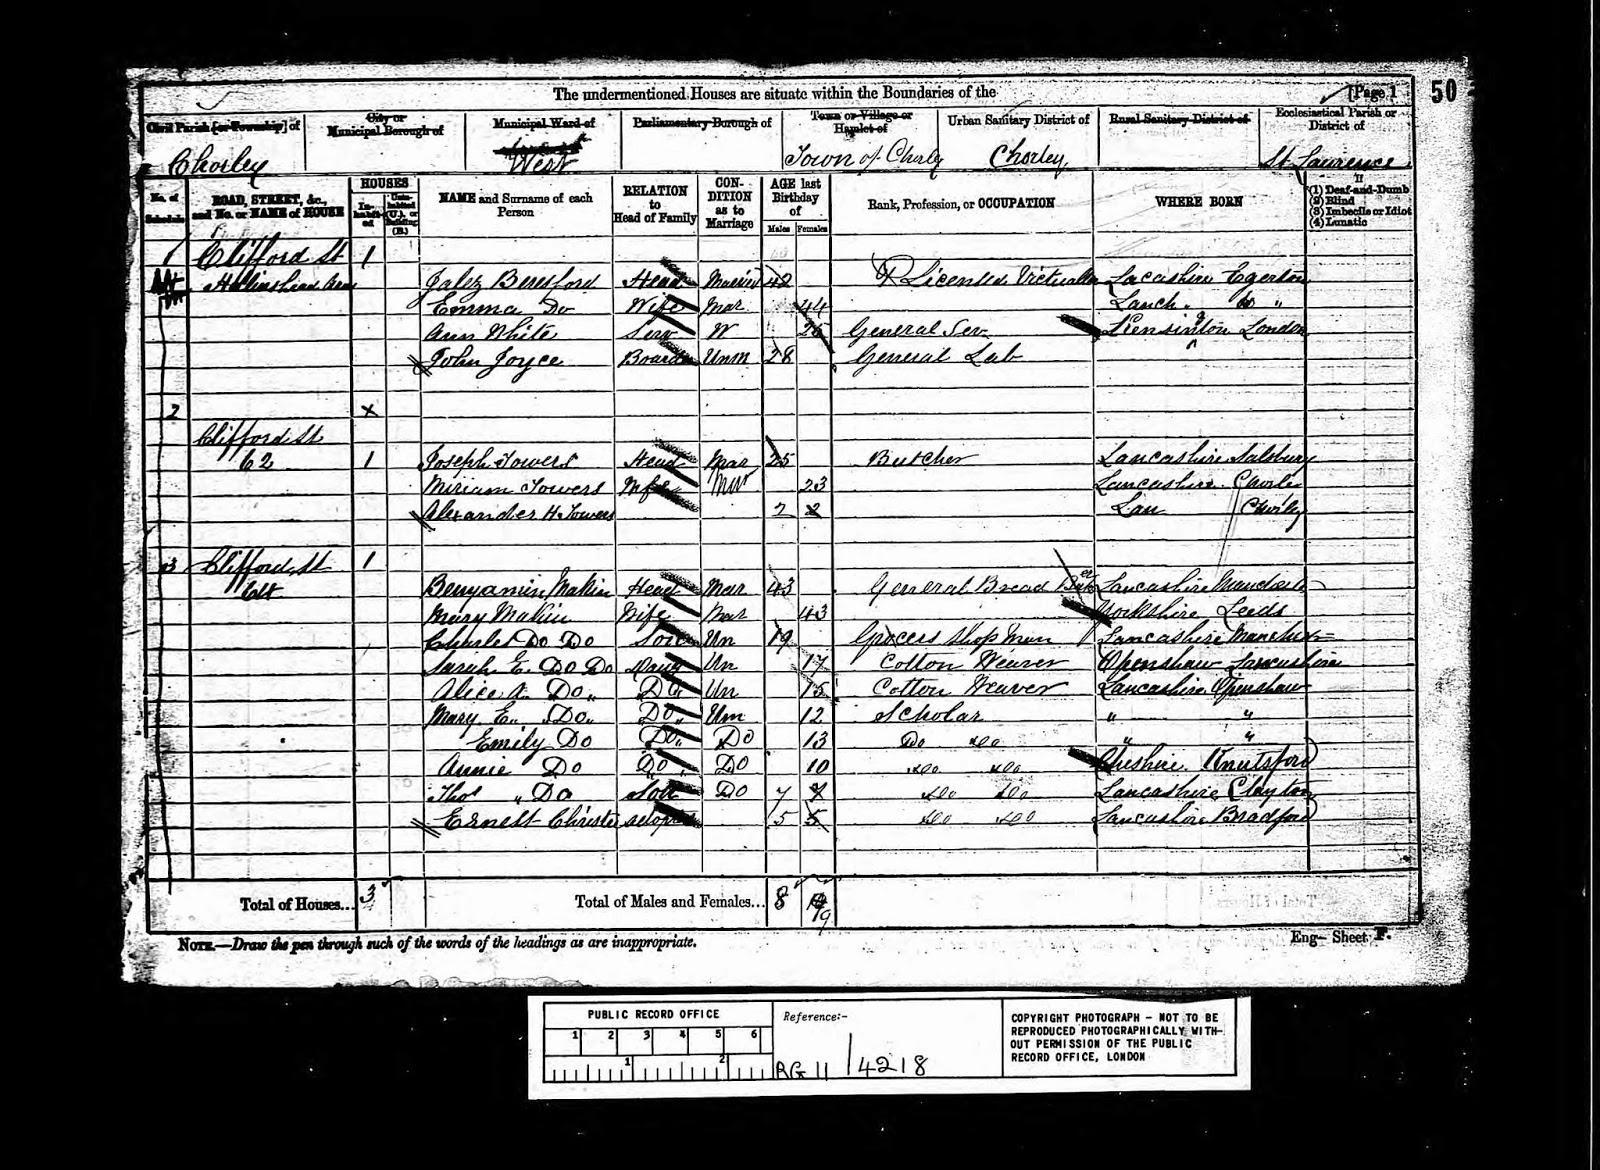 The undermentioned Houses are situate within the Boundaries of the
[Page 1
50
Civil Parish [or Township] of
City or Municipal Borough of
Municipal Ward of
Parliamentary Borough of
Town or Village or Hamlet of
Urban Sanitary District of
Rural Sanitary District of
Ecclesiastical Parish or District of
Chorley
West
Town of Chorley
Chorley
St Lawrence
No. of Schedule
ROAD, STREET, &c., and No. or NAME of HOUSE
HOUSES
Inhabited
Uninhabited (U.), or Building (B.)
NAME and Surname of each Person
RELATION to Head of Family
CONDITION as to Marriage
AGE last Birthday of
Males
Females
Rank, Profession, or OCCUPATION
WHERE BORN
If
(1) Deaf-and-Dumb
(2) Blind
(3) Imbecile or Idiot
(4) Lunatic
1 Clifford St 1
Jabez Beresford Head Married 42 Licensed Victualler Lacashire Egerton
Emma Do Wife Mar 44 Lanch " Do "
Ann White Serv W 25 General Ser Kensinton London
John Joyce Boarder Unm 28 General Lab
2 x
Clifford St
62 1 Joseph Towers Head Mar 25 Butcher Lancashire Salsbury
Miriam Towers Wife Mar 23 Lancashire Chorley
Alexander H. Towers 2 2 Lan Chorley
3 Clifford St 1
64 Benyamin Makin Head Mar 43 General Bread Baker Lancashire Manchester
Mary Makin Wife Mar 43 Yorkshire Leeds
Charles Do Do Son Un 19 Grocers Shop man Lancashire Manchester
Sarah E. Do Do Daug Un 17 Cotton Weaver Openshaw Lancashire
Alice A. Do " Do " Un 15 Cotton Weaver Lancashire Openshaw
Mary E. " Do " Do " Um 12 Scholar " "
Emily Do Do " Do 13 Do Do " "
Annie Do Do " Do 10 Do Do Cheshire Knutsford
Thos " Do Son Do 7 7 Do Do Lancashire Clayton
Ernest Christie adopted 5 5 Do Do Lancashire Bradford
Total of Houses... 3
Total of Males and Females... 8 9
NOTE.—Draw the pen through such of the words of the headings as are inappropriate.
Eng— Sheet F.
PUBLIC RECORD OFFICE
1 2 3 4 5 6
1 2
Reference:-
RG 11 / 4218
COPYRIGHT PHOTOGRAPH - NOT TO BE
REPRODUCED PHOTOGRAPHICALLY WITH-
OUT PERMISSION OF THE PUBLIC
RECORD OFFICE, LONDON